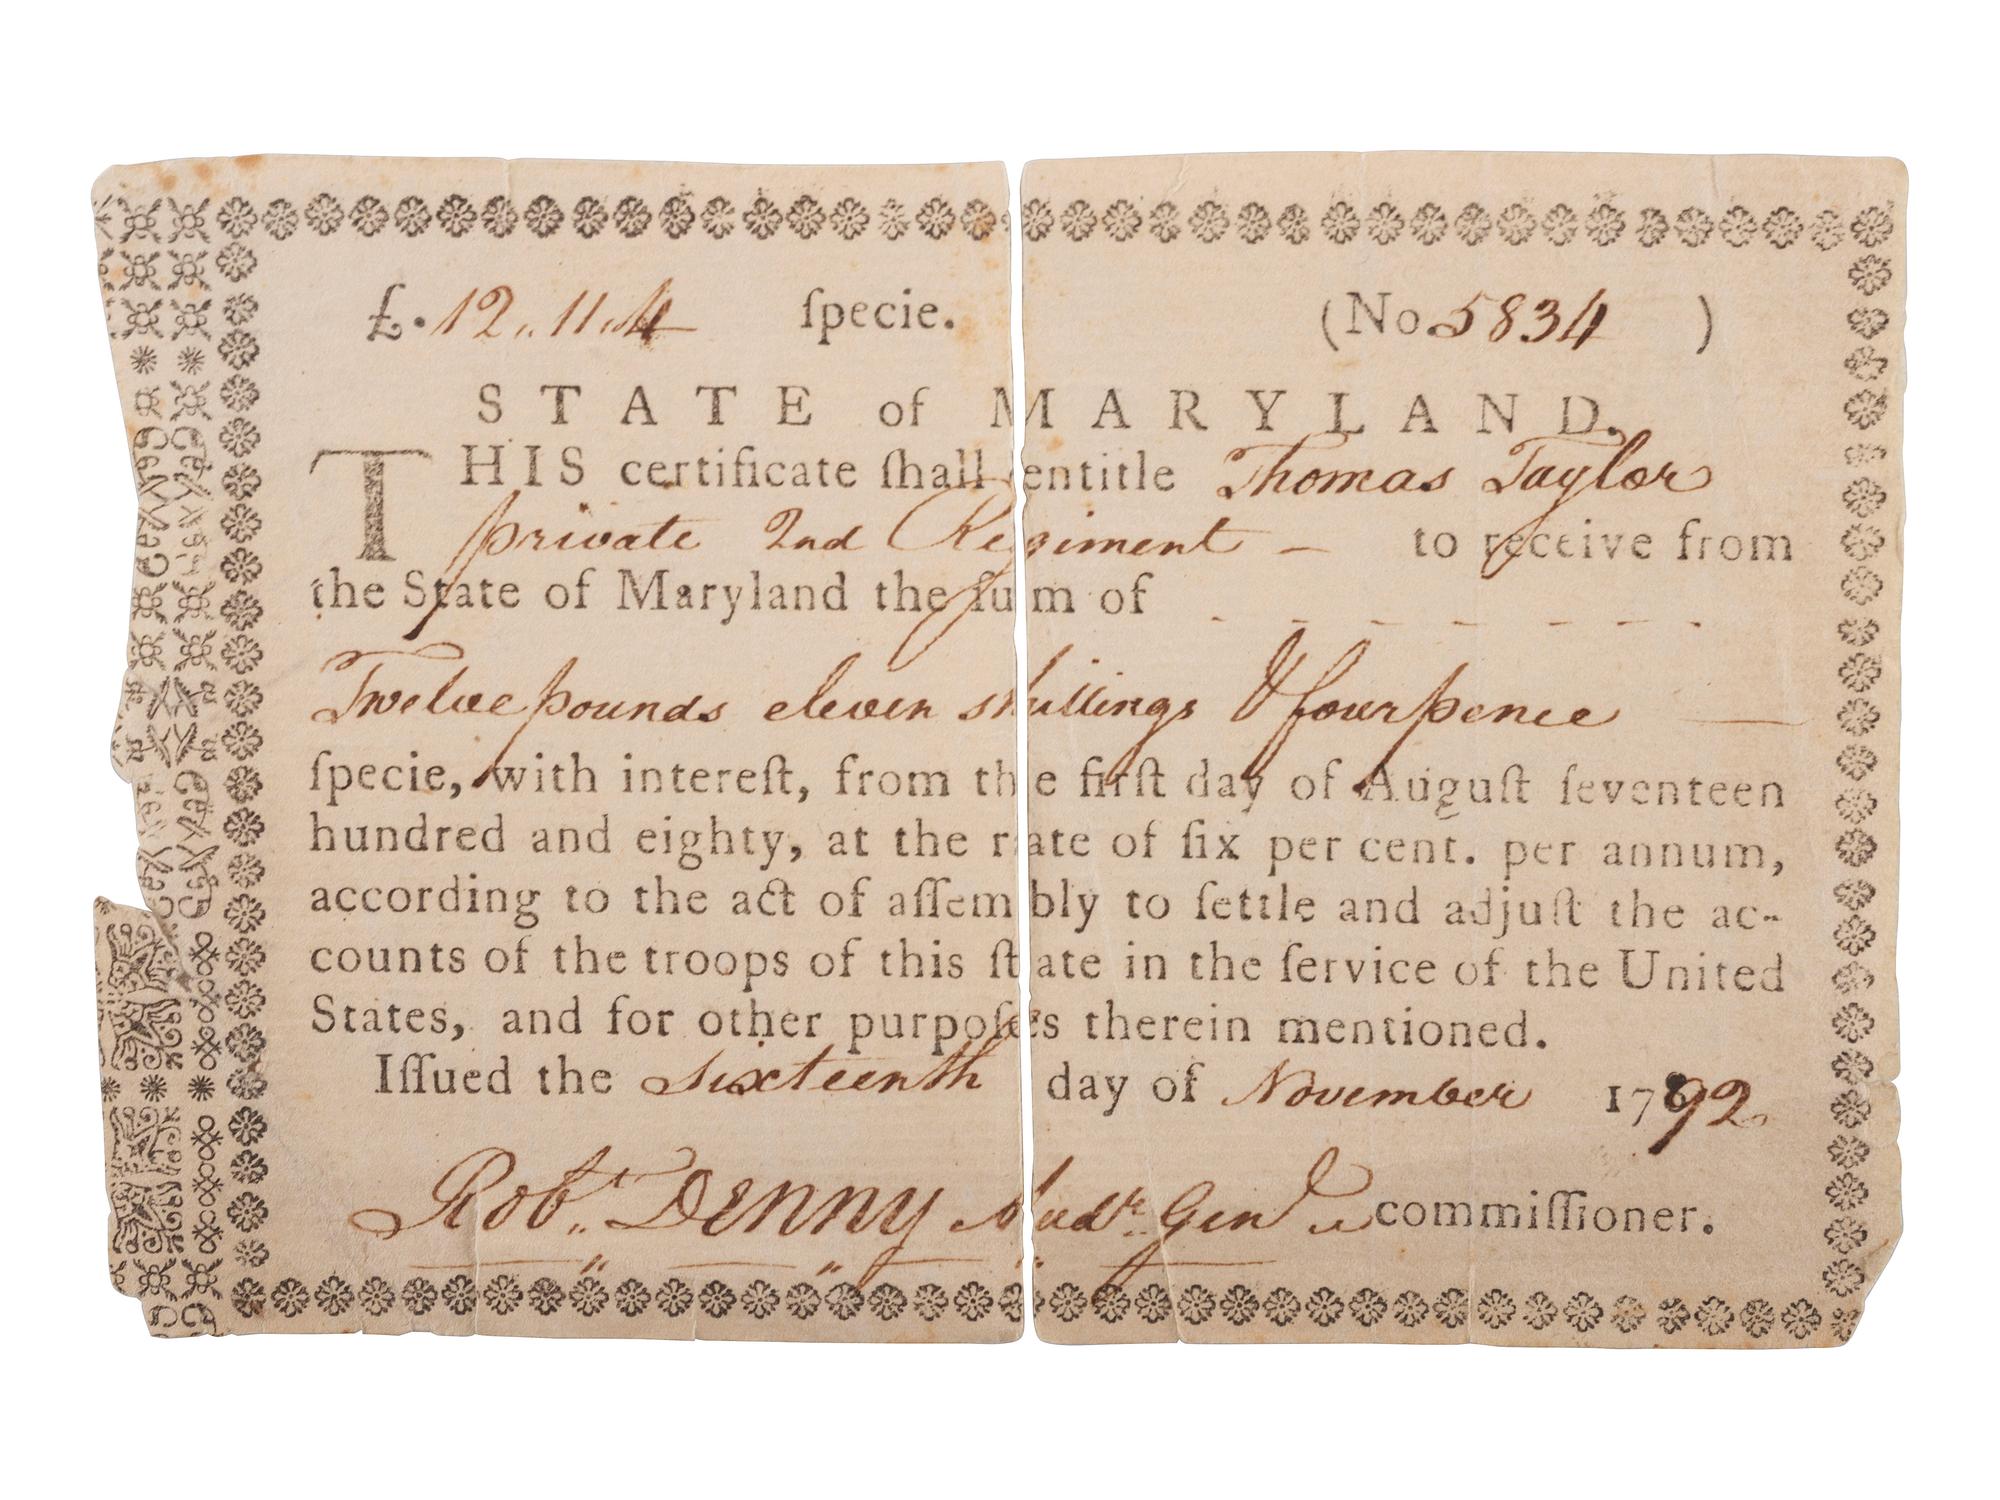 £. 12,, 11,, 4 ſpecie. (No. 5834 )
STATE of MARYLAND.
THIS certificate ſhall entitle Thomas Taylor
private 2nd Regiment – to receive from
the State of Maryland the ſum of - - - - - - -
Twelve pounds eleven shillings & fourpence —
ſpecie, with intereſt, from the firſt day of Auguſt ſeventeen
hundred and eighty, at the rate of ſix per cent. per annum,
according to the act of aſſembly to ſettle and adjuſt the ac-
counts of the troops of this ſtate in the ſervice of the United
States, and for other purpoſes therein mentioned.
Iſſued the Sixteenth day of November 1792
Robt. Denny Audr. Genl. commiſſioner.